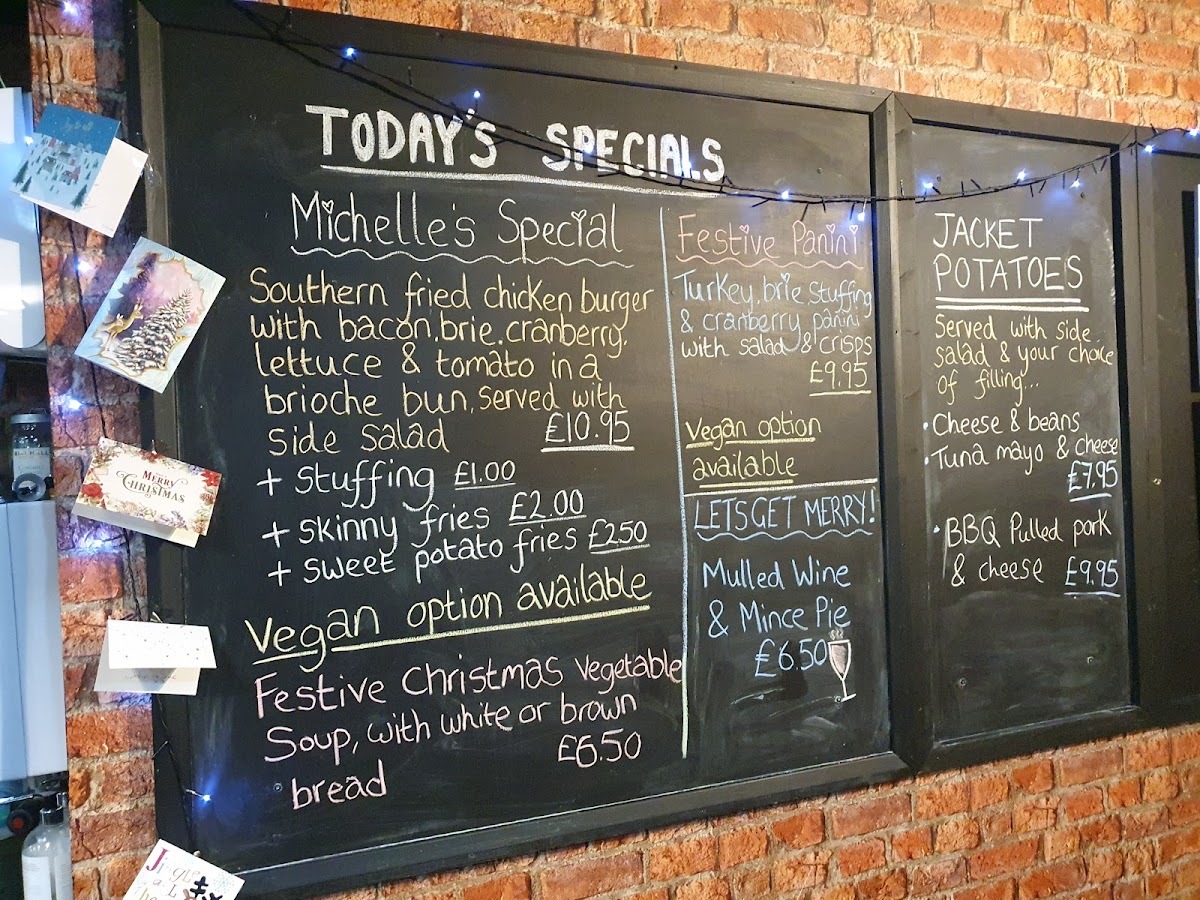 TODAY'S SPECIALS
Michelle's Special
Southern fried chicken burger
with bacon, brie, cranberry,
lettuce & tomato in a
brioche bun, served with
side salad £10.95
+ Stuffing £1.00
+ skinny fries £2.00
+ sweet potato fries £250
Vegan option available
Festive Christmas vegetable
Soup, with white or brown
bread £6.50
Festive Panini
Turkey, brie, stuffing
& cranberry panini
with salad & crisps
£9.95
Vegan option
available
LETS GET MERRY!
Mulled Wine
& Mince Pie
£6.50
JACKET
POTATOES
Served with side
salad & your choice
of filling...
• Cheese & beans
• Tuna mayo & cheese
£7.95
• BBQ Pulled pork
& cheese £9.95
MERRY
CHRISTMAS
JINGLE